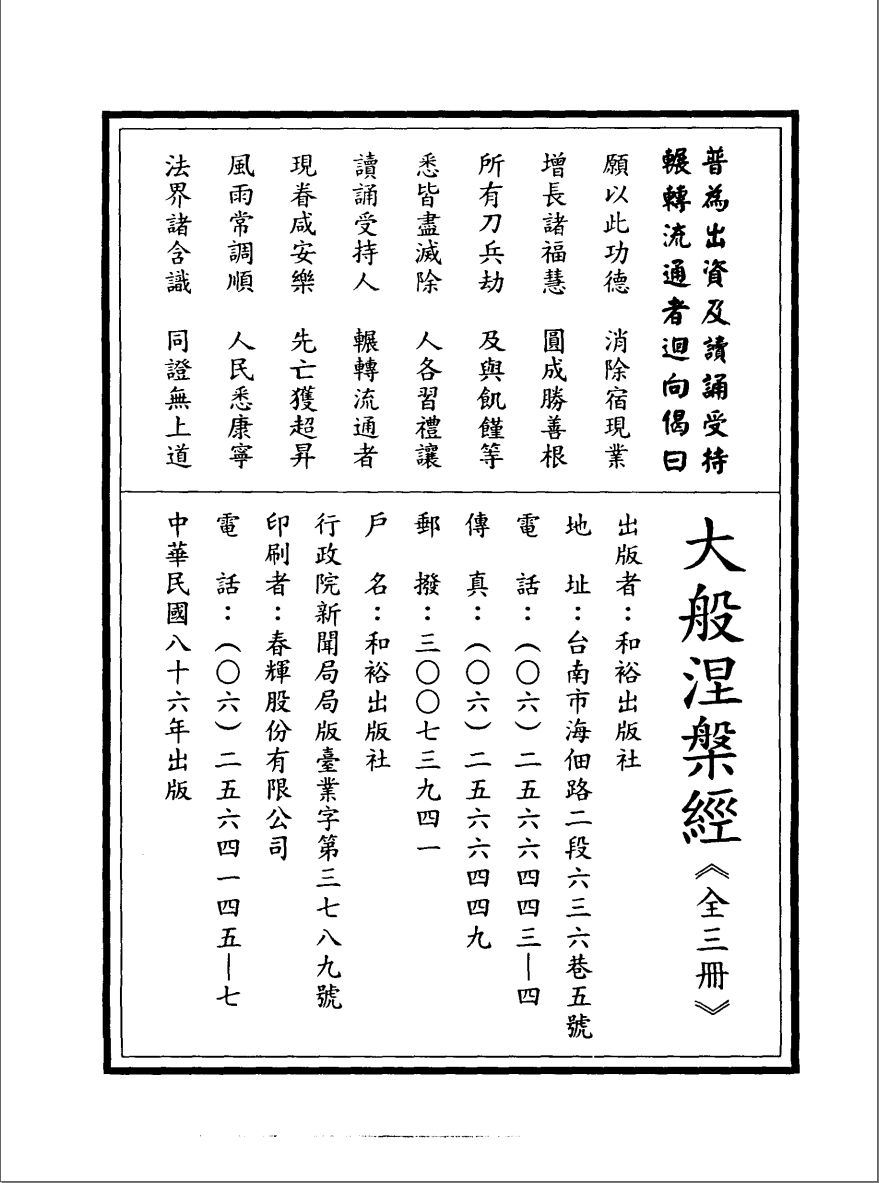 普為出資及讀誦受持
輾轉流通者迴向偈曰
願以此功德　消除宿現業
增長諸福慧　圓成勝善根
所有刀兵劫　及與飢饉等
悉皆盡滅除　人各習禮讓
讀誦受持人　輾轉流通者
現眷咸安樂　先亡獲超昇
風雨常調順　人民悉康寧
法界諸含識　同證無上道
大般涅槃經《全三冊》
出版者：和裕出版社
地　址：台南市海佃路二段六三六巷五號
電　話：（〇六）二五六六四四三—四
傳　真：（〇六）二五六六四四九
郵　撥：三〇〇七三九四一
戶　名：和裕出版社
行政院新聞局局版臺業字第三七八九號
印刷者：春輝股份有限公司
電　話：（〇六）二五六四一四五—七
中華民國八十六年出版